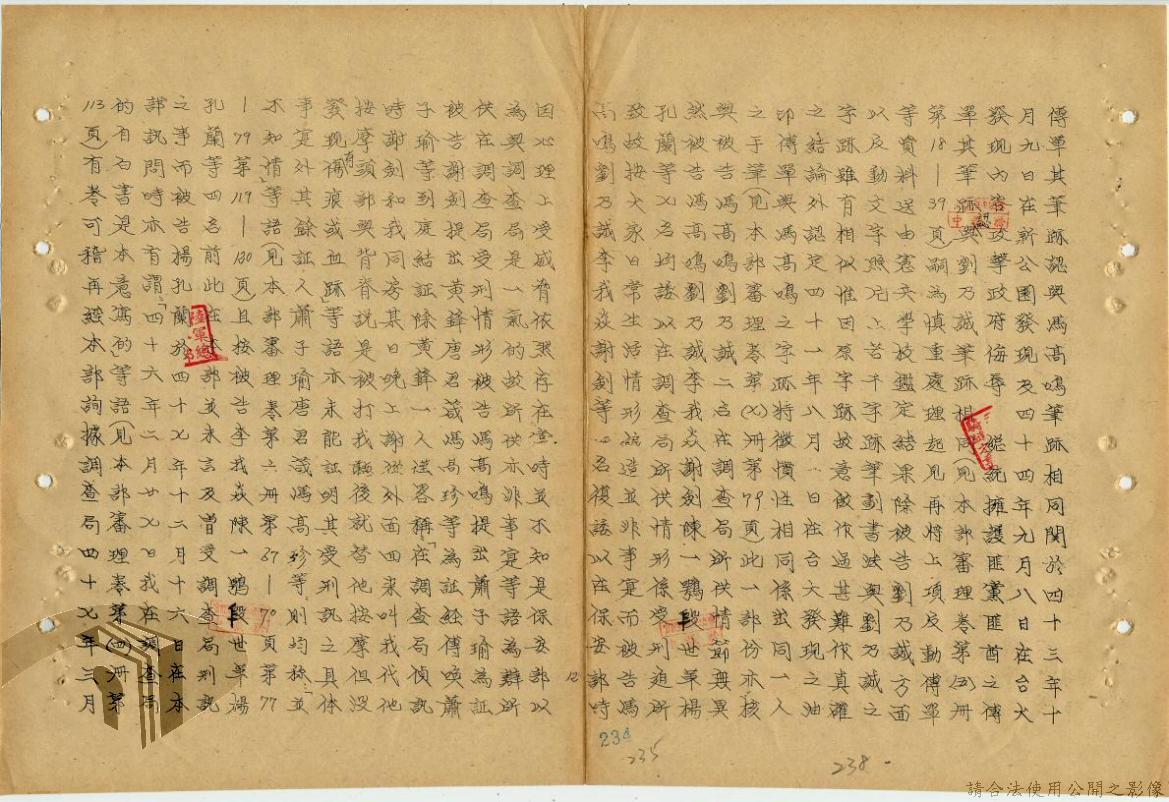 傳單其筆跡認與馮高鳴筆跡相同關於四十三年十
月九日在新公園發現及四十四年元月八日在台大
發現內容攻擊政府侮辱 總統擁護匪黨匪酋之傳
單其筆跡與劉乃誠筆跡相同(見本部審理卷第(五)册
第18—39頁)嗣為慎重處理起見再將上項反動傳單
等資料送由憲兵學校鑑定結果除被告劉乃誠方面
以反動文字照片上若干字跡筆劃書法與劉乃誠之
字跡雖有相似惟因原字跡故意做作過甚難作真確
之結論外認定四十一年八月 日在台大發現之油
印傳單與馮高鳴之字跡特徵慣性相同係出同一人
之手筆(見本部審理卷第(七)册第79頁)此一部份亦核
與被告馮高鳴劉乃誠二名在調查局所供情節無異
然被告馮高鳴劉乃誠李我焱謝劍陳一鶚段世革楊
孔蘭等七名均諉以在調查局所供情形係受刑迫所
致故按大家日常生活情形編造並非事實而被告馮
高鳴劉乃誠李我焱謝劍等四名復諉以在保安部時
234
235
238-
因心理上受威脅依然存在當時並不知是保安部以
為與調查局是一氣的故所供亦非事實等語為辯所
供在調查局受刑情形被告馮高鳴提出蕭子瑜為証
被告謝劍提出黃鋒唐君葳馮高珍等為証經傳喚蕭
子瑜等到庭結証除黃鋒一人漢容稱「在調查局偵訊
時謝劍和我同房某日晚上謝從外面回來叫我代他
按摩頭部與背脊說是被打我聽後就替他按摩但沒
發現有傷痕或血跡」等語亦未能証明其受刑訊之具体
事實外其餘証人蕭子瑜唐君葳馮高珍等則均稱「並
不知情」等語(見本部審理卷第六册第67—70頁第77
—79第119—130頁)且按被告李我焱陳一鶚段世革楊
孔蘭等四名前此在本部並未言及曾受調查局刑訊
之事而被告楊孔蘭於四十七年十二月十六日在本
部訊問時亦有謂「四十六年二月廿七日我在調查局
的自白書是本意寫的」等語(見本部審理卷第(四)册第
113頁)有卷可稽再經本部詢據調查局四十七年三月
12
請合法使用公開之影像